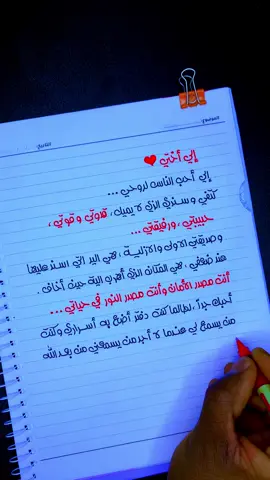 الموضوع
التاريخ
إلى أختي
إلى أحب الناس لروحي ...
كتفي وسندي الذي لا يميل ، قلاوتي وقوتي ،
حبيبتي ، ورفيقتي ...
وصديقتي الأولى والأزلية ، هي اليد التي اسند عليها
عند ضعفي ، هي المكان الذي أهرب الية حين أخاف .
أنت مصدر الأمان وأنت مصدر النور في حياتي ...
أحبك جداً ، لطالما كنت دفتر أضع به أسراري وكنت
من يسمع لي عندما لا أجد من يسمعني من بعد الله